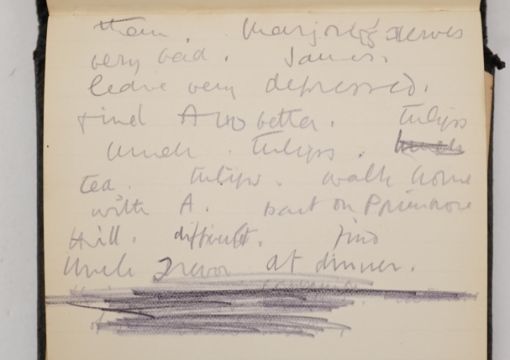 them. Marjorie's nerves
very bad. James.
leave very depressed.
find A no better. tulips
lunch. tulips.
tea. tulips. walk home
with A. part on Primrose
Hill. difficult. find
Uncle Trevor at dinner.